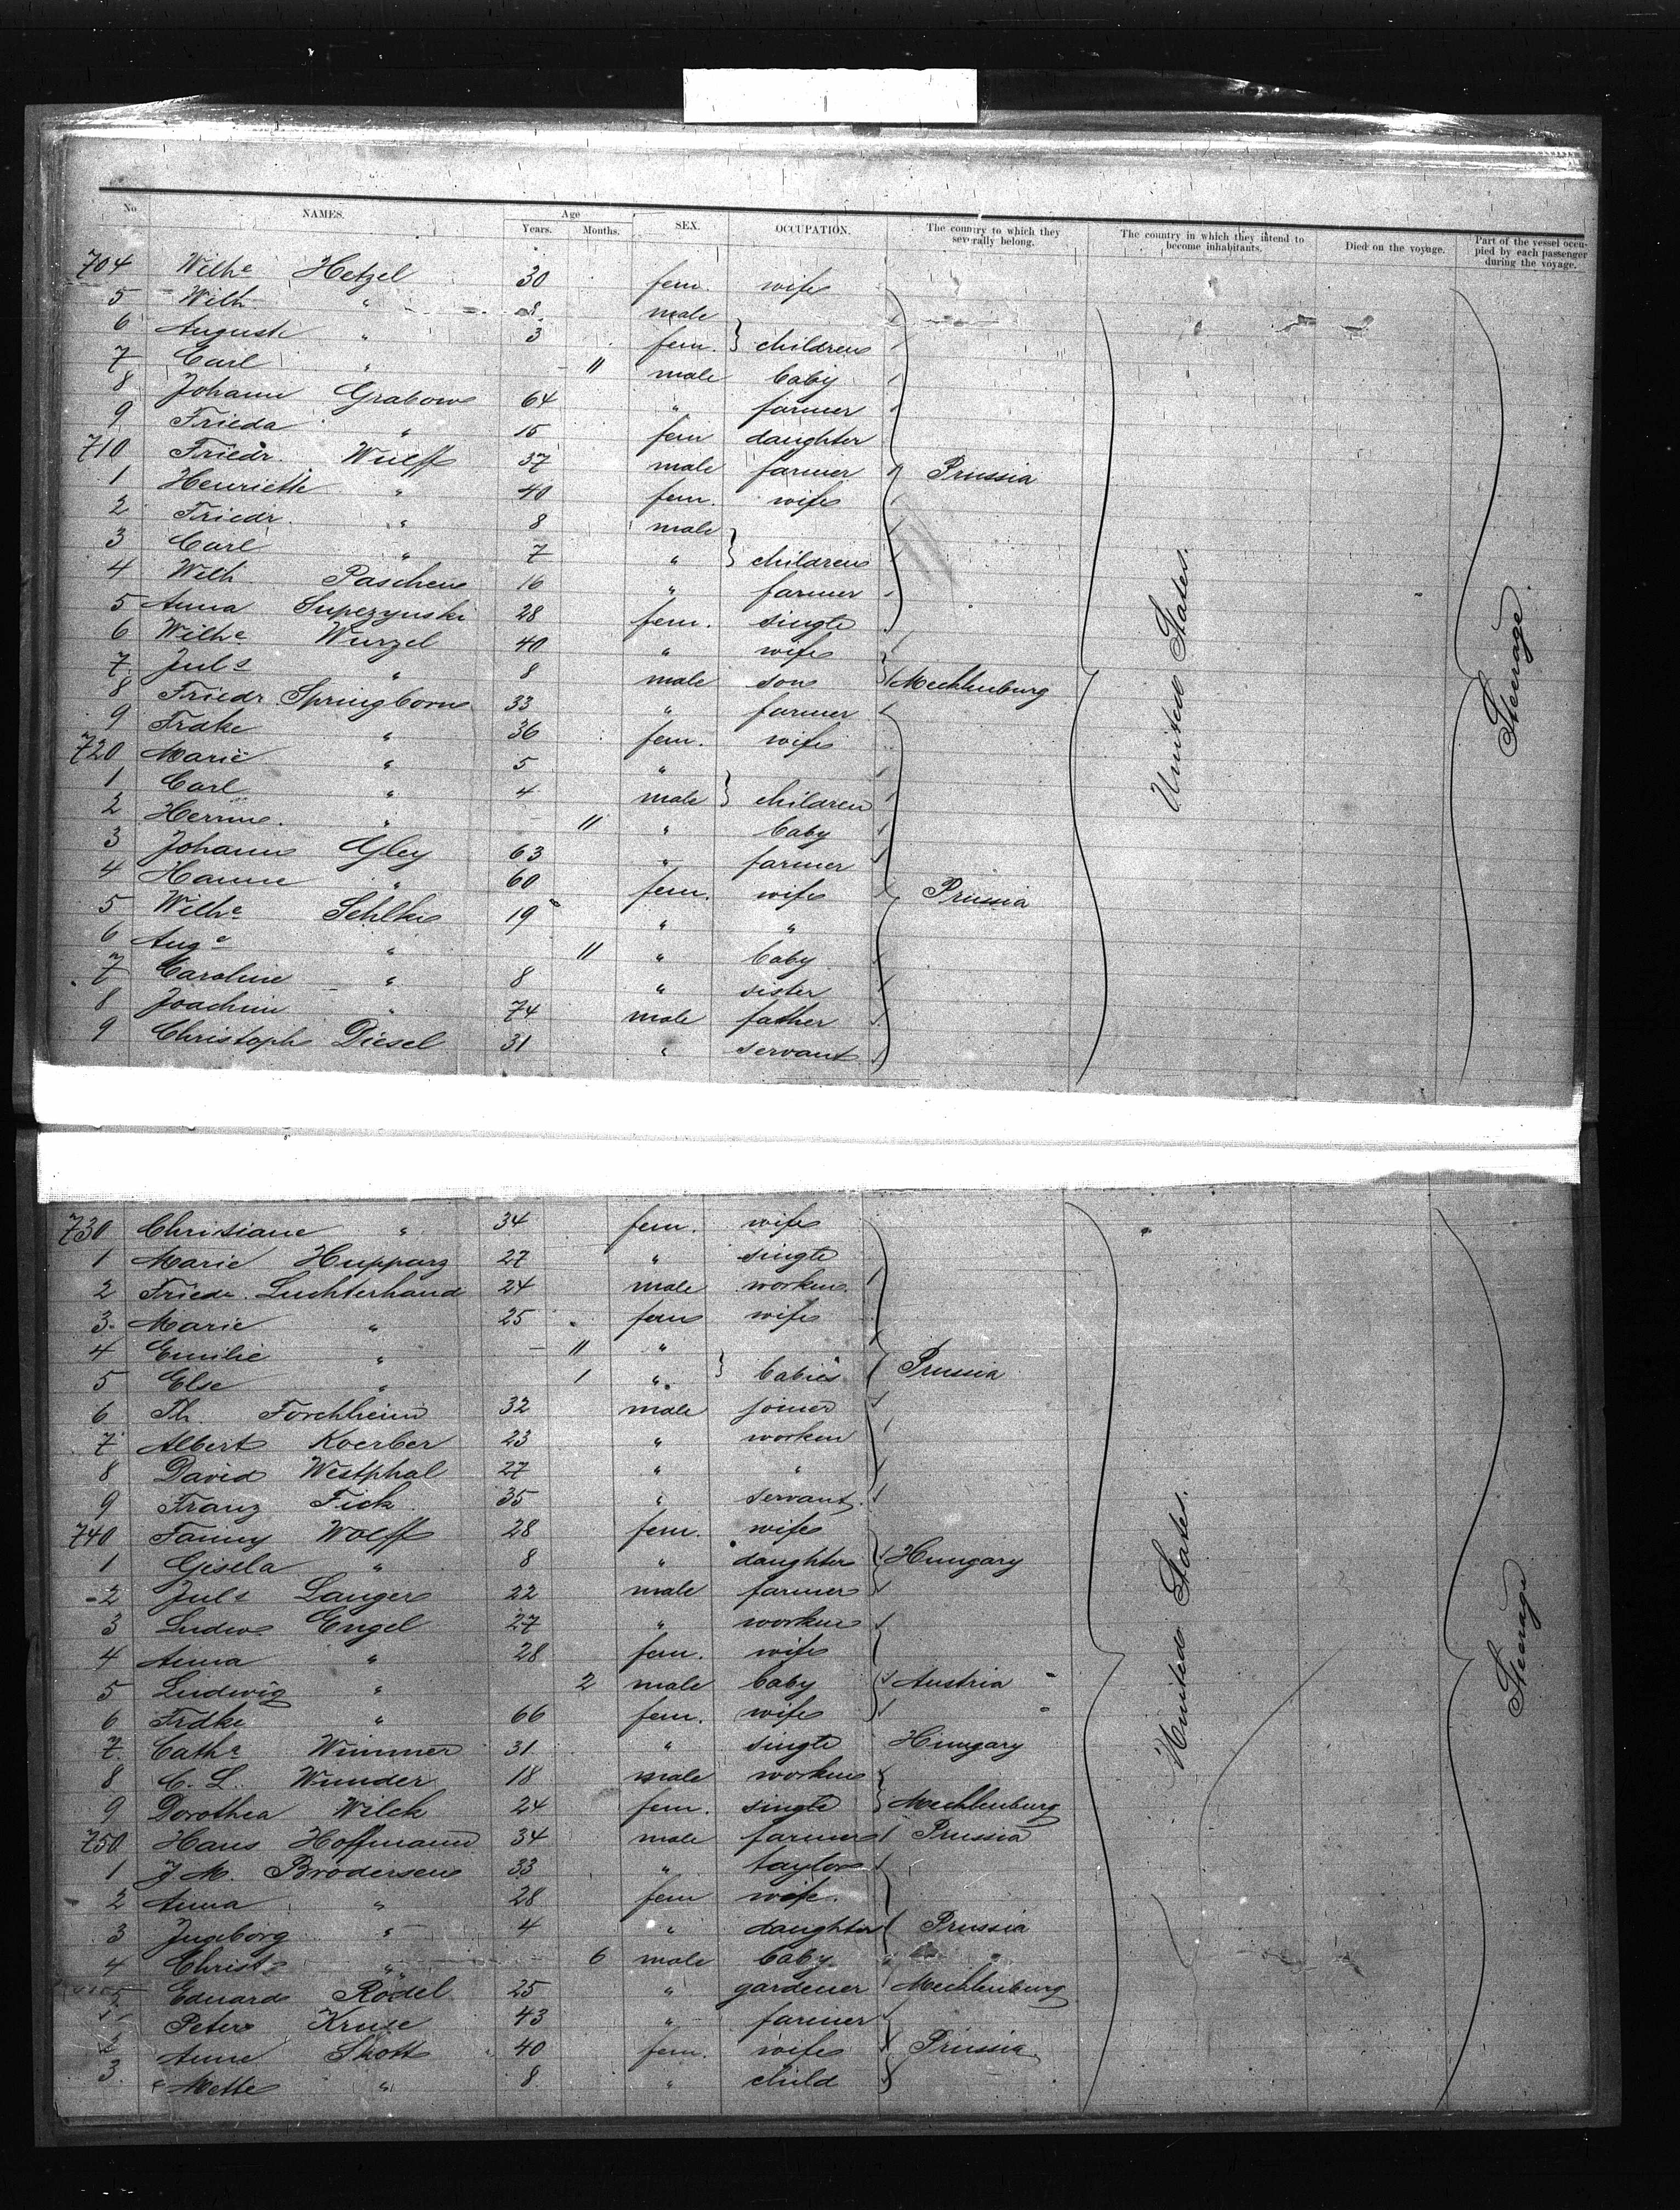 No NAMES. Age Years. Months. SEX. OCCUPATION. The country to which they severally belong. The country in which they intend to become inhabitants. Died on the voyage. Part of the vessel occupied by each passenger during the voyage.
704 Wilhe Hetzel 30 fem. wife
5 Wilh " 8 male
6 Auguste " 3 fem. } children
7 Carl " - 11 male baby
8 Johann Grabow 64 " farmer
9 Frieda " 15 fem daughter
710 Friedr. Wulff 37 male farmer Prussia
1 Henriette " 40 fem. wife
2 Friedr. " 8 male
3 Carl " 7 " } children
4 Wilh Paschen 16 " farmer
5 Anna Supezynski 28 fem. single
6 Wilhe Wurzel 40 " wife
7 Juls " 8 male son Mecklenburg
8 Friedr. Springborn 33 " farmer
9 Frdke " 36 fem. wife
720 Marie " 5 "
1 Carl " 4 male } children
2 Herm. " - 11 " baby
3 Johann Gley 63 " farmer
4 Hanne " 60 fem. wife Prussia
5 Wilhe Sehlke 19 " "
6 Auge " 11 " baby
7 Caroline " 8 " sister
8 Joachim " 74 male father
9 Christoph Diesel 31 " servant
United States.
Steerage
730 Christiane " 34 fem. wife
1 Marie Hupparz 27 " single
2 Friedr. Luchterhand 24 male worken.
3 Marie " 25 fem wife
4 Emilie " - 11 "
5 Else " 1 " } babies Prussia
6 Th. Forchheim 32 male joiner
7 Albert Koerber 23 " worken
8 David Westphal 27 " "
9 Franz Fick 35 " servant.
740 Fanny Wolff 28 fem. wife
1 Gisela " 8 " daughter Hungary
2 Juls Langer 22 male farmer
3 Ludw. Engel 27 " worken
4 Anna " 28 fem. wife
5 Ludwig " 2 male baby Austria
6 Frdke " 66 fem. wife
7 Cathe Wimmer 31 " single Hungary
8 C. L. Wunder 18 male worken
9 Dorothea Wilck 24 fem. single Mecklenburg
750 Hans Hoffmann 34 male farmer Prussia
1 J. M. Brodersen 33 " taylor
2 Anna " 28 fem wife.
3 Ingeborg " 4 " daughter Prussia
4 Christ. " - 6 male baby
5 Eduard Rödel 25 " gardener Mecklenburg
Peter Kruse 43 " farmer
2 Anne Skott 40 fem. wife Prussia
3 Mette " 8 " child
United States.
Steerage